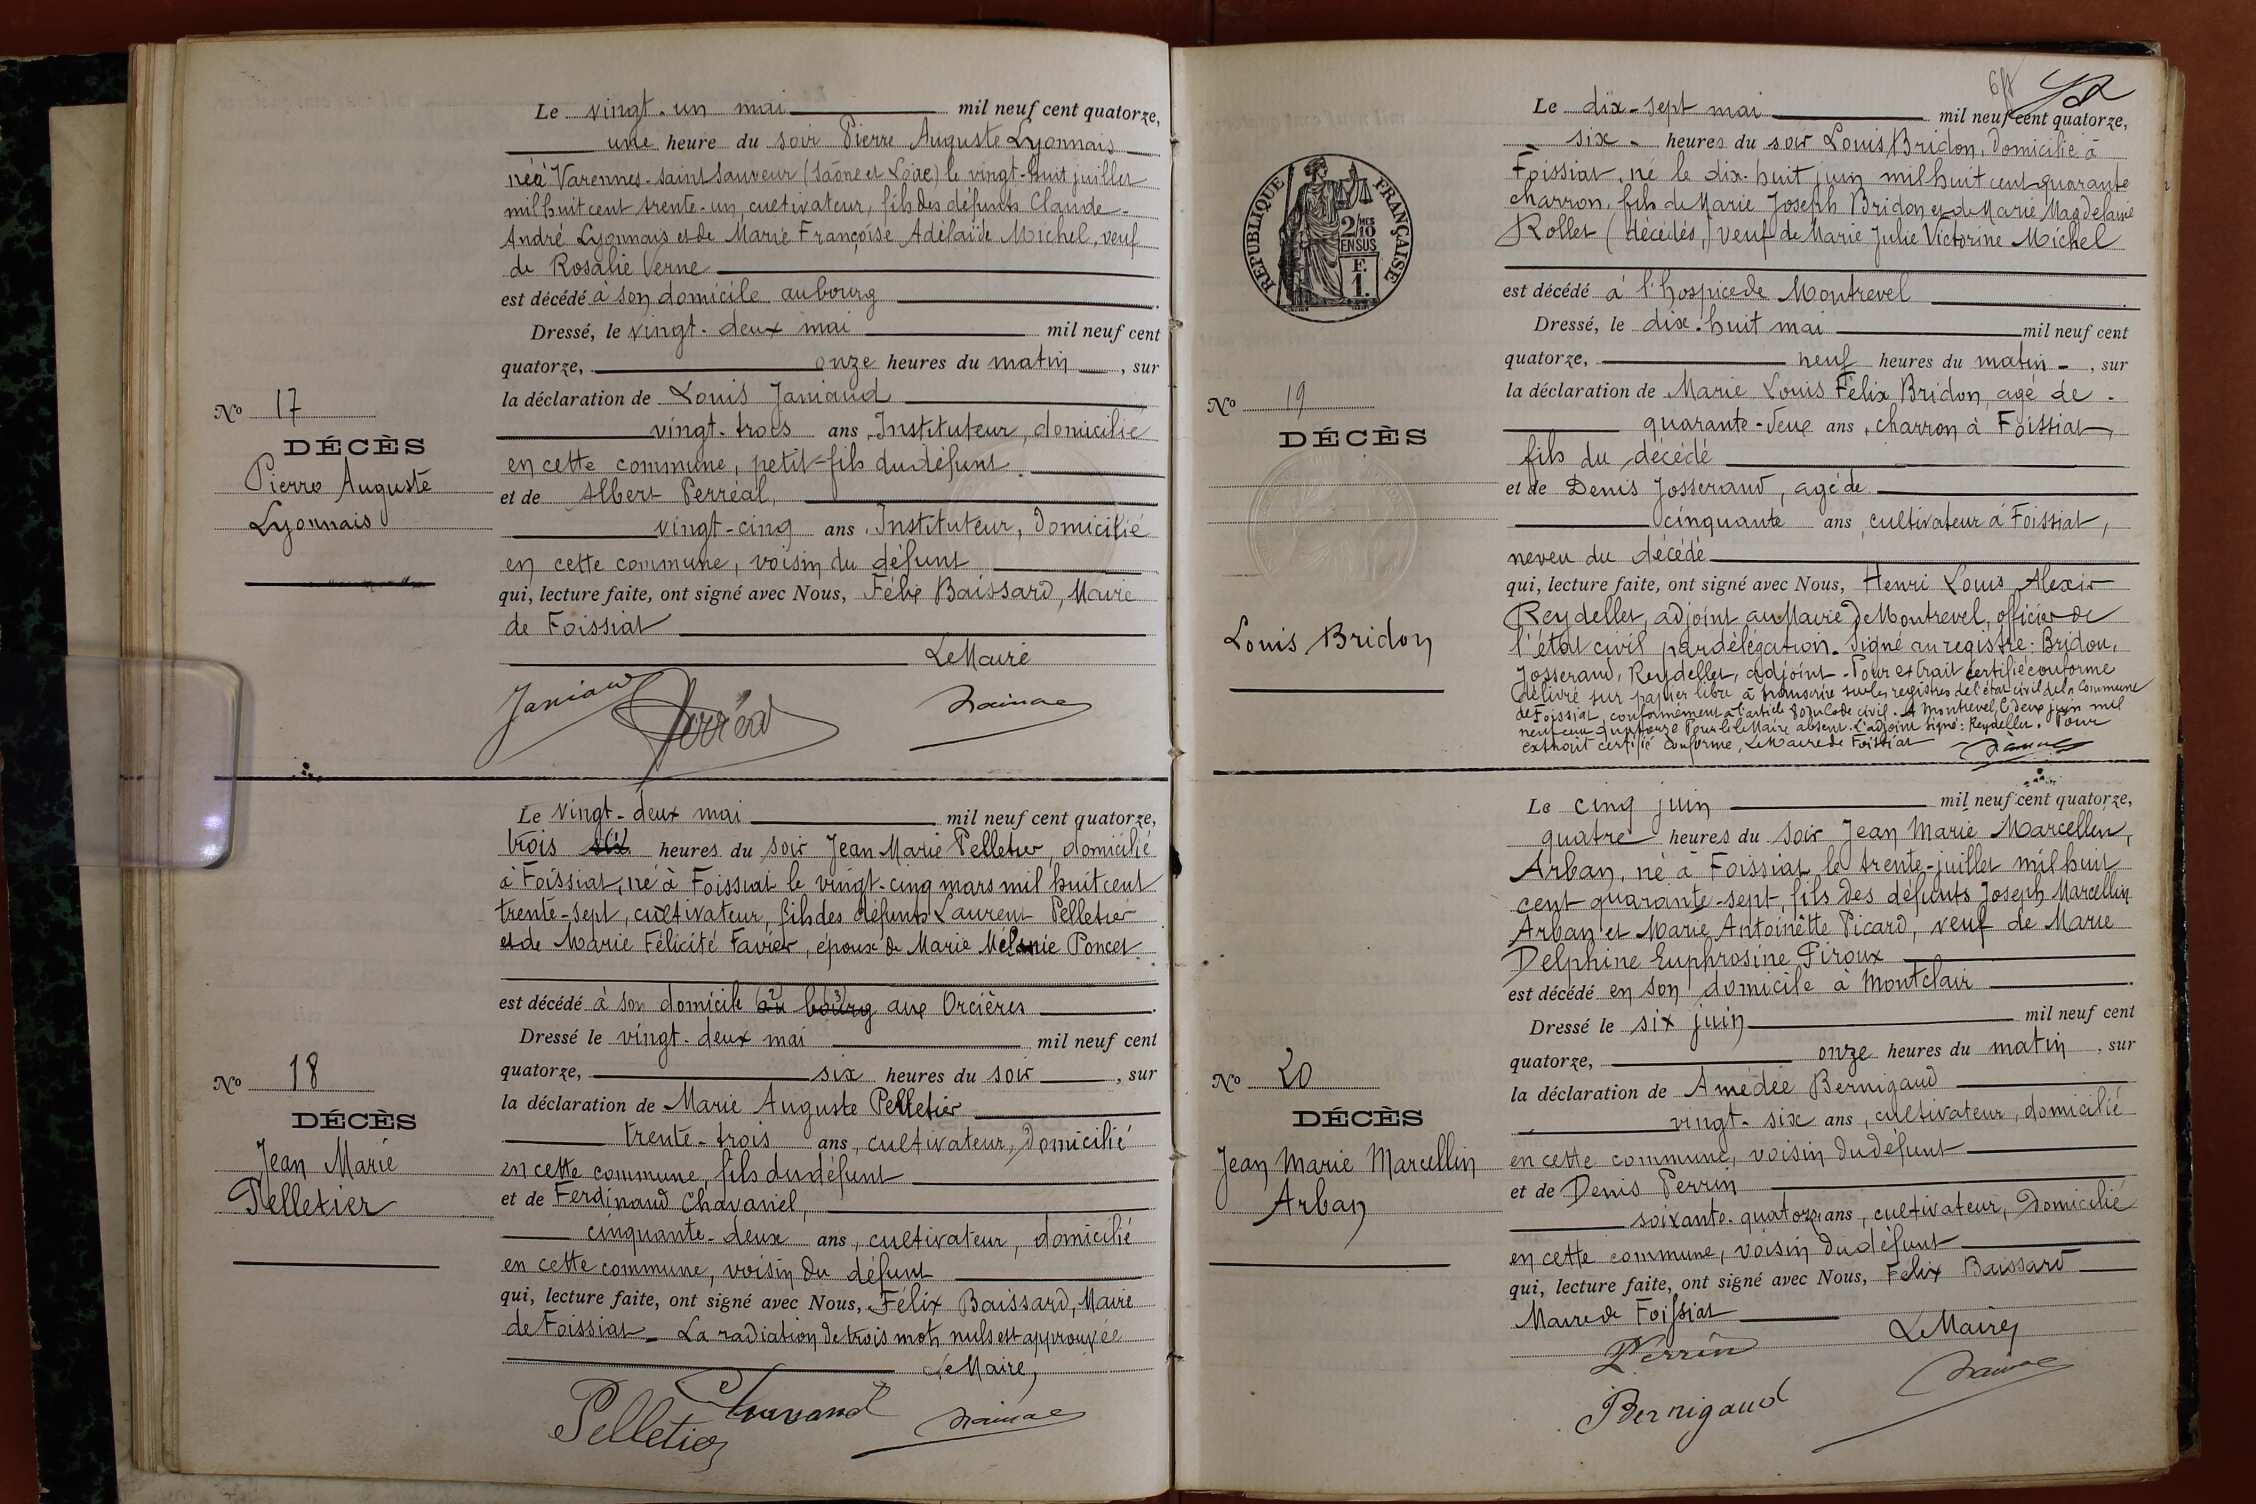 Le vingt-un mai mil neuf cent quatorze,
une heure du soir Pierre Auguste Lyonnais
né à Varennes-saint Sauveur (Saône et Loire) le vingt-huit juillet
mil huit cent trente-un, cultivateur, fils des défunts Claude-
André Lyonnais et de Marie Françoise Adélaïde Michel, veuf
de Rosalie Verne
est décédé à son domicile au bourg
Dressé, le vingt-deux mai mil neuf cent
quatorze, onze heures du matin, sur
la déclaration de Louis Janiaud
vingt-trois ans, Instituteur, domicilié
en cette commune, petit-fils du défunt
et de Albert Perréal,
vingt-cinq ans, Instituteur, domicilié
en cette commune, voisin du défunt
qui, lecture faite, ont signé avec Nous, Félix Baissard, Maire
de Foissiat
Le Maire
Janiaud
Perréal
No 17
DÉCÈS
Pierre Auguste
Lyonnais
Le vingt-deux mai mil neuf cent quatorze,
trois six heures du soir Jean Marie Pelletier, domicilié
à Foissiat, né à Foissiat le vingt-cinq mars mil huit cent
trente-sept, cultivateur, fils des défunts Laurent Pelletier
et de Marie Félicité Favier, époux de Marie Mélanie Poncet
est décédé à son domicile au bourg aux Orcières
Dressé le vingt-deux mai mil neuf cent
quatorze, six heures du soir, sur
la déclaration de Marie Auguste Pelletier
trente-trois ans, cultivateur, domicilié
en cette commune, fils du défunt
et de Ferdinand Chavanel,
cinquante-deux ans, cultivateur, domicilié
en cette commune, voisin du défunt
qui, lecture faite, ont signé avec Nous, Félix Baissard, Maire
de Foissiat - La radiation de trois mots nuls est approuvée
Le Maire,
Pelletier
No 18
DÉCÈS
Jean Marie
Pelletier
Le dix-sept mai mil neuf cent quatorze,
six - heures du soir Louis Bridon, domicilié à
Foissiat, né le dix-huit juin mil huit cent quarante
charron, fils de Marie Joseph Bridon et de Marie Magdelaine
Rollet (décédés,) veuf de Marie Julie Victorine Michel
est décédé à l'hospice de Montrevel
Dressé, le dix-huit mai mil neuf cent
quatorze, neuf heures du matin -, sur
la déclaration de Marie Louis Félix Bridon, agé de
quarante-deux ans, charron à Foissiat,
fils du décédé
et de Denis Josserand, agé de
cinquante ans, cultivateur à Foissiat,
neveu du décédé
qui, lecture faite, ont signé avec Nous, Henri Louis Alexis
Reydellet, adjoint au Maire de Montrevel, officier de
l'état civil par délégation. Signé au registre: Bridon,
Josserand, Reydellet, adjoint - Pour extrait certifié conforme
délivré sur papier libre à transcrire sur les registres de l'état civil de la Commune
de Foissiat, conformément à l'article 80 du Code civil. A Montrevel, le deux juin mil
neuf cent quatorze Pour le Maire absent. L'adjoint Signé: Reydellet. Pour
extrait certifié conforme, Le Maire de Foissiat
RÉPUBLIQUE FRANÇAISE
2/10 EN SUS
F. 1.
No 19
DÉCÈS
Louis Bridon
Le cinq juin mil neuf cent quatorze,
quatre heures du soir Jean Marie Marcellin,
Arban, né à Foissiat le trente-juillet mil huit
cent quarante-sept, fils des défunts Joseph Marcellin
Arban et Marie Antoinette Picard, veuf de Marie
Delphine Euphrosine Piroux
est décédé en son domicile à Montclair
Dressé le six juin mil neuf cent
quatorze, onze heures du matin, sur
la déclaration de Amédée Bernigaud
vingt-six ans, cultivateur, domicilié
en cette commune, voisin du défunt
et de Denis Perrin
soixante-quatorze ans, cultivateur, domicilié
en cette commune, voisin du défunt
qui, lecture faite, ont signé avec Nous, Félix Baissard
Maire de Foissiat
Le Maire,
Perrin
Bernigaud
No 20
DÉCÈS
Jean Marie Marcellin
Arban